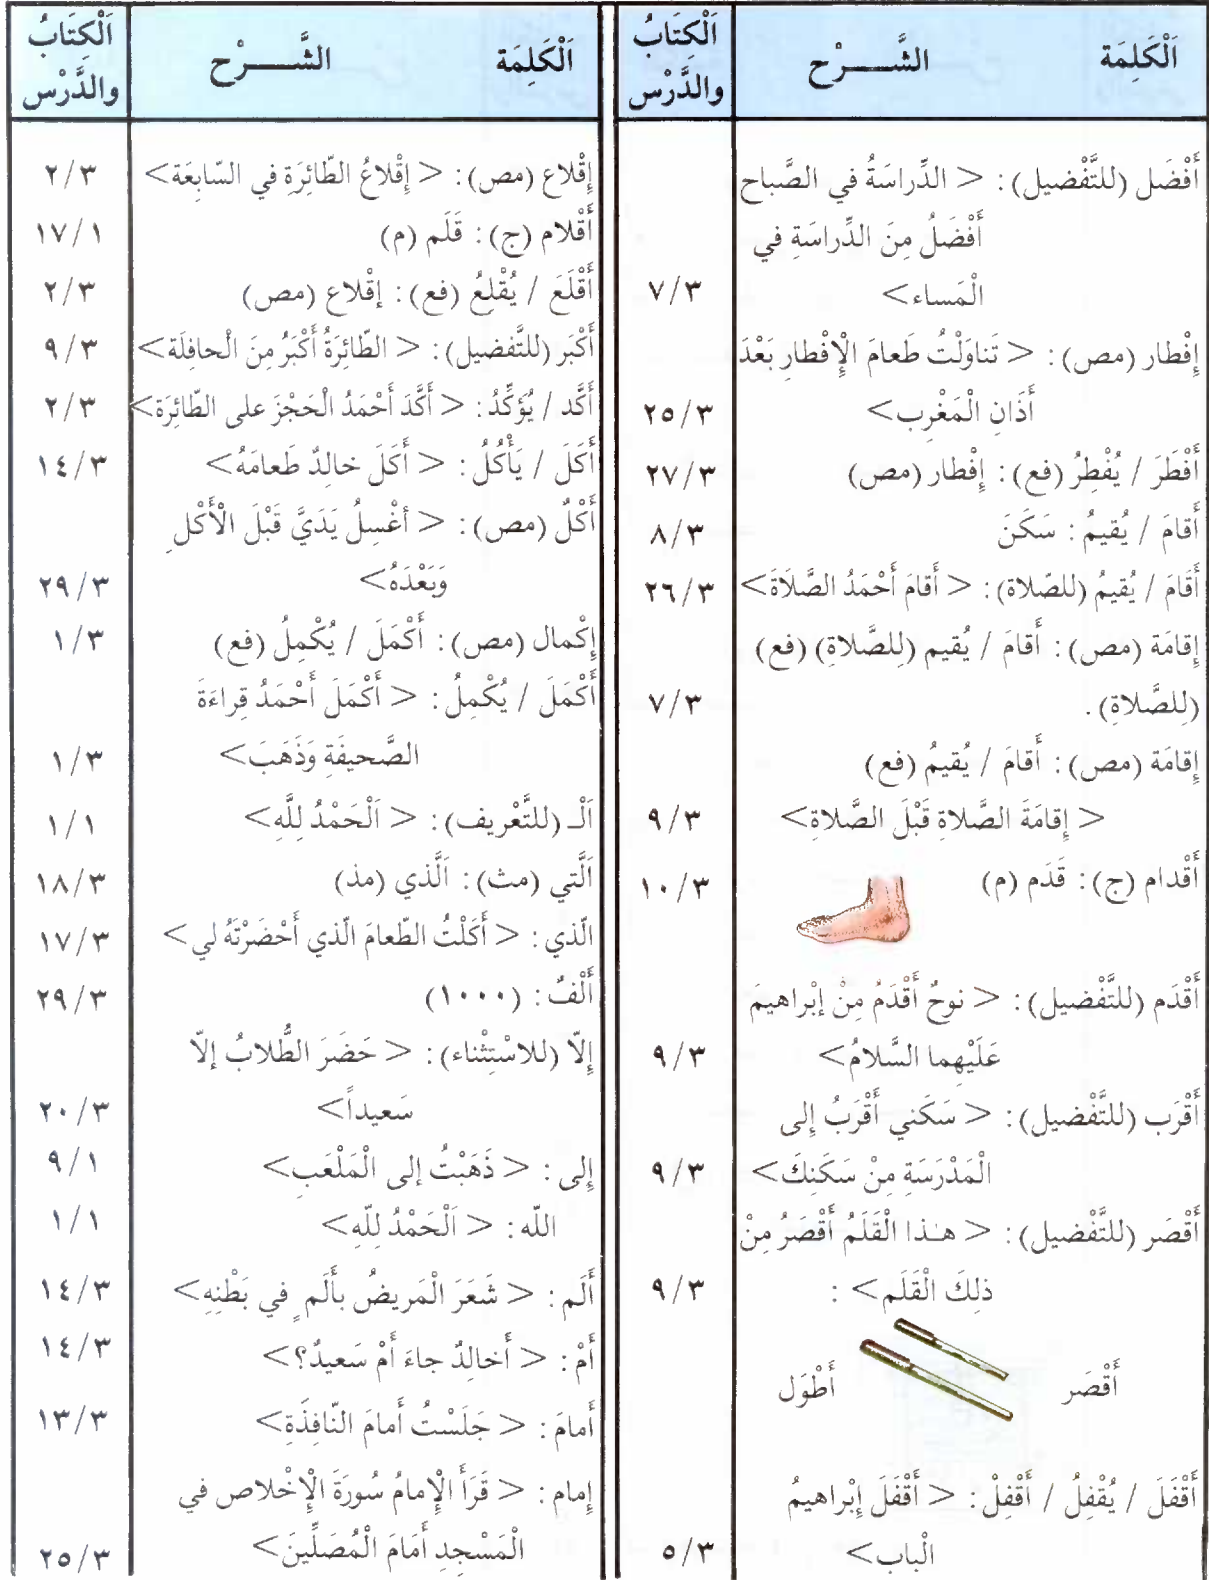 اَلْكَلِمَة الشَّـــرْح اَلْكِتَابُ والدَّرْس
أَفْضَل (للتَّفْضيل): < الدِّراسَةُ في الصَّباح
أَفْضَلُ مِنَ الدِّراسَةِ في
الْمَساء> ٧/٣
إِفْطار (مص): < تَناوَلْتُ طَعامَ الْإِفْطارِ بَعْدَ
أَذَانِ الْمَغْرِب> ٢٥/٣
أَفْطَرَ / يُفْطِرُ (فع): إِفْطار (مص) ٢٧/٣
أَقامَ / يُقيمُ: سَكَنَ ٨/٣
أَقَامَ / يُقيمُ (للصّلاة): < أَقامَ أَحْمَدُ الصَّلَاةَ> ٢٦/٣
إِقامَة (مص): أَقامَ / يُقيم (لِلصَّلاةِ) (فع)
(لِلصَّلاةِ). ٧/٣
إِقامَة (مص): أَقامَ / يُقيمُ (فع)
< إِقامَةَ الصَّلاةِ قَبْلَ الصَّلاةِ> ٩/٣
أَقْدام (ج): قَدَم (م) ١٠/٣
أَقْدَم (للتَّفْضيل): < نوحٌ أَقْدَمُ مِنْ إبْراهيمَ
عَلَيْهِما السَّلامُ> ٩/٣
أَقْرَب (للتَّفْضيل): < سَكَني أَقْرَبُ إِلى
الْمَدْرَسَةِ مِنْ سَكَنِكَ> ٩/٣
أَقْصَر (للتَّفْضيل): < هـٰذا الْقَلَمُ أَقْصَرُ مِنْ
ذلِكَ الْقَلَم> : ٩/٣
أَقْصَر أَطْوَل
أَقْفَلَ / يُقْفِلُ / أَقْفِلْ: < أَقْفَلَ إِبْراهيمُ
الْباب> ٥/٣
اَلْكَلِمَة الشَّـــرْح اَلْكِتَابُ والدَّرْس
إِقْلاع (مص): < إِقْلاعُ الطّائِرَةِ في السّابِعَة> ٢/٣
أَقْلام (ج): قَلَم (م) ١٧/١
أَقْلَعَ / يُقْلِعُ (فع): إقْلاع (مص) ٢/٣
أَكْبَر (للتَّفضيل): < الطّائِرَةُ أَكْبَرُ مِنَ الْحافِلَة> ٩/٣
أَكَّد / يُؤَكِّدُ: < أَكَّدَ أَحْمَدُ الْحَجْزَ على الطّائِرَة> ٢/٣
أَكَلَ / يَأْكُلُ: < أَكَلَ خالِدٌ طَعامَهُ> ١٤/٣
أَكْلٌ (مص): < أغْسِلُ يَدَيَّ قَبْلَ الْأَكْلِ
وَبَعْدَهُ> ٢٩/٣
إِكْمال (مص): أَكْمَلَ / يُكْمِلُ (فع) ١/٣
أَكْمَلَ / يُكْمِلُ: < أَكْمَلَ أَحْمَدُ قِراءَةَ
الصَّحيفَةِ وَذَهَبَ> ١/٣
اَلْـ (للتَّعْريف): < اَلْحَمْدُ لِلَّهِ> ١/١
اَلَّتي (مث): اَلَّذي (مذ) ١٨/٣
الّذي: < أَكَلْتُ الطّعامَ الّذي أَحْضَرْتَهُ لي> ١٧/٣
أَلْفٌ: (١٠٠٠) ٢٩/٣
إِلّا (للاسْتِثْناء): < حَضَرَ الطُّلابُ إلّا
سَعيداً> ٢٠/٣
إِلى: < ذَهَبْتُ إلى الْمَلْعَبِ> ٩/١
اللّه: < اَلْحَمْدُ لِلّهِ> ١/١
أَلَم: < شَعَرَ الْمَريضُ بأَلَمٍ في بَطْنِهِ> ١٤/٣
أَمْ: < أَخالِدٌ جاءَ أَمْ سَعيدٌ؟> ١٤/٣
أَمامَ: < جَلَسْتُ أَمامَ النّافِذَةِ> ١٣/٣
إِمام: < قَرَأَ الْإِمامُ سُورَةَ الْإِخْلاص في
الْمَسْجِدِ أَمَامَ الْمُصَلِّينَ> ٢٥/٣